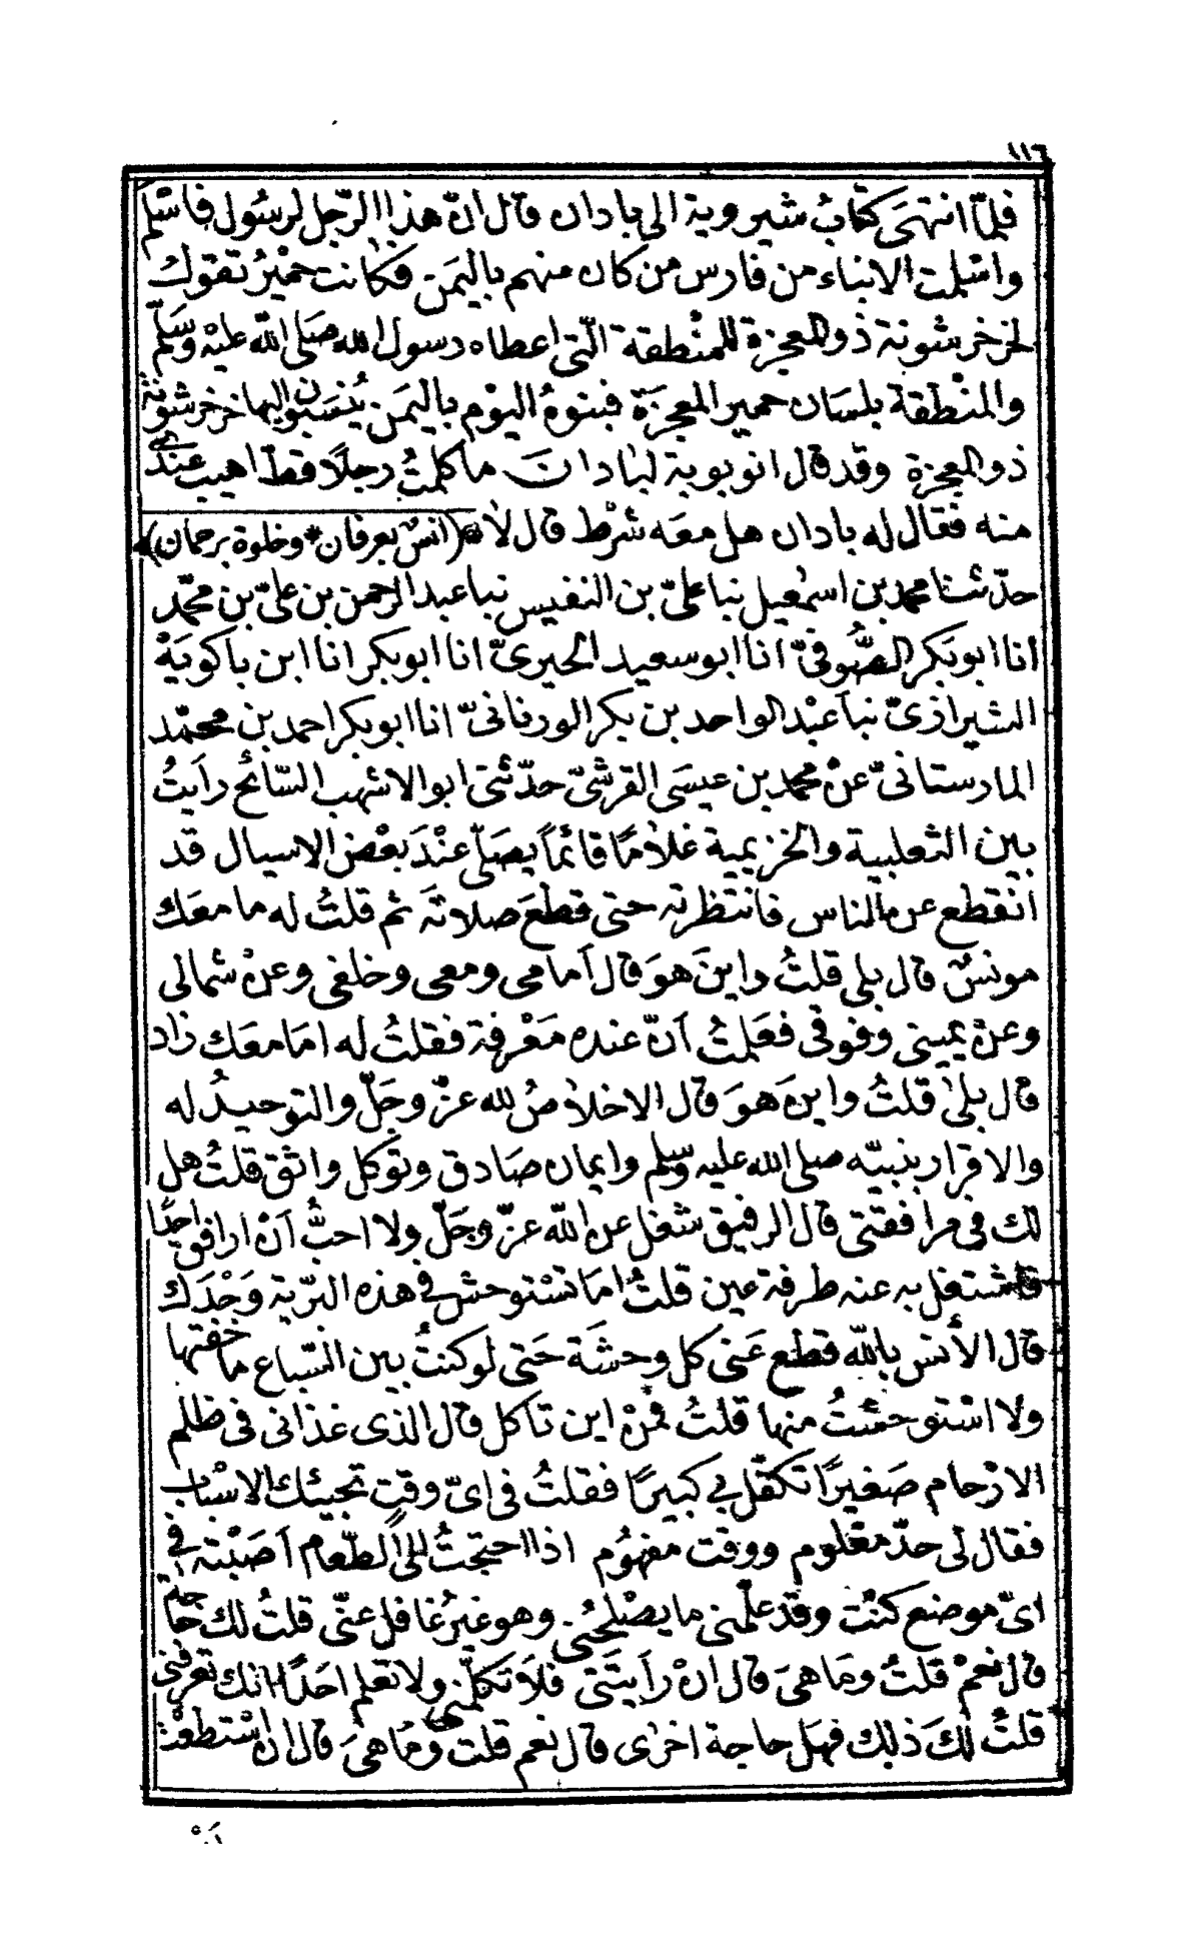 ١١٦
فلمّا انتهىَ كتابُ شيرويه الى باداں قال انّ هذا الرّجل لرسُول فاسْلم
واسْلمت الابناء من فارس من كاں منهم باليَمن فكانت حمْيرُ تقول
لخرخرشونة ذو المعجزة للمنْطقة الّتى اعطاه رسول الله صَلى الله عليْه وَسَلّم
والمنْطقة بلسَاں حمير المعجزَة فبنوهُ اليوْم باليَمن يُنسَبوں اليها خرخرشونة
ذو المعجزة وقد قال انوبوية لباداں مَا كلمتُ رجلًا قطّ اهيب عندى
منه فقال له باداں هل معَه شرْط قال لا ۞ (انسٌ بعرفان * وخلوة برحمان)
حدّثنا محمد بن اسمعيل نبا علىّ بن النفيس نبا عبد الرحمن بن علىّ بن محمّد
انا ابو بَكر الصُّوفىّ انا ابو سعيد الحيرىّ انا ابو بكر انا ابن باكويَهْ
الشيرازىّ نبا عبْد الواحد بن بكر الورثانىّ انا ابو بكر احمد بن محمّد
المارستانىّ عنْ محمد بن عيسَى القرشىّ حدّثنى ابو الاشهب السّائح رايتُ
بين الثعلبية والخزيمية غلامًا قائمًا يصَلّى عنْدَ بعْض الاميال قد
انقطع عن الناس فانتظرته حتى قطعَ صلاتَه ثم قلتُ له ما معَك
مونسٌ قال بلى قلتُ واينَ هوَ قال أمامى ومعى وخلفى وعنْ شمالى
وعنْ يمينى وفوقى فعَلمتُ أنّ عنده مَعْرفة فقلتُ له امَا معَك زاد
قال بلىٰ قلتُ واينَ هوَ قال الاخلاصُ لله عزّ وجَلّ والتوحيدُ له
والاقرار بنبيّه صلى الله عليه وسلم وايماں صَادق وتوكل واثق قلتُ هل
لك فى مرافقتى قال الرفيق شغل عن الله عزّ وجَلّ ولا احبُّ أنْ ارافق احدًا
فاشتغل به عنه طرفة عين قلتُ امَا تسْتوحش فى هذه البرّية وَحْدَك
قال الأنس بالله قطع عَنى كل وحشَة حَتى لو كنتُ بين السّباع ما خفتها
ولا اسْتوحشتُ منها قلتُ فمنْ اين تاكل قال الذى غذانى فى ظلم
الارْحام صَغيرًا تكفّل بى كبيرًا فقلتُ فى اىّ وقتٍ تجيئك الاسْباب
فقال لى حدّ معْلوم ووقت مفهُوم اذا احتجتُ الى الطّعام أصَبْته فى
اىّ موضع كنْت وقد علّمنى ما يصْلحُنى وهو غيرُ غافل عنّى قلتُ لك حَاجَة
قال نعمْ قلتُ ومَا هىَ قال انْ رأيتَنى فلاَ تكلّمنى ولا تعْلم احَدًا انك تعْرفنى
قلتُ لكَ ذلك فهَل حاجة اخرٰى قال نعم قلت ومَا هىَ قال اں اسْتطعْت
اَنْ